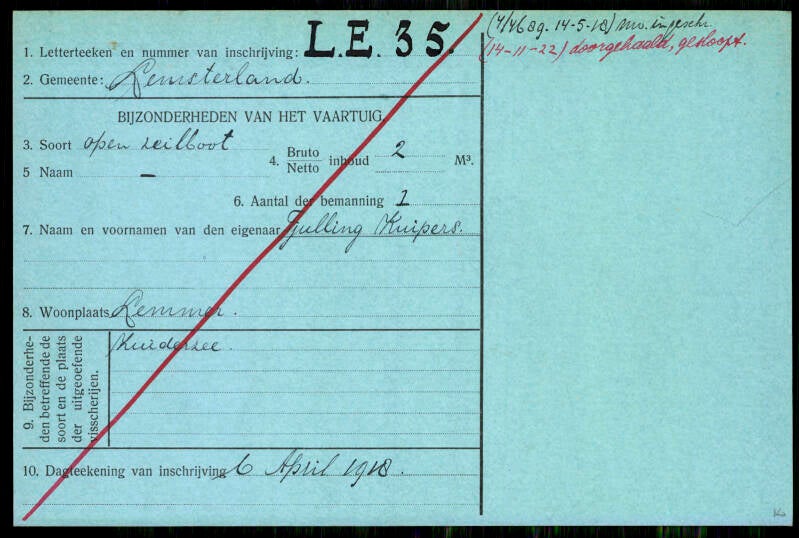 1. Letterteeken en nummer van inschrijving: L.E. 35.
2. Gemeente: Lemsterland.
BIJZONDERHEDEN VAN HET VAARTUIG.
3. Soort open zeilboot
4. Bruto Netto inhoud 2 M³.
5 Naam –
6. Aantal der bemanning 1
7. Naam en voornamen van den eigenaar Tjulling Kuipers.
8. Woonplaats Lemmer.
9. Bijzonderhe-
den betreffende de
soort en de plaats
der uitgeoefende
visscherijen.
Zuiderzee.
10. Dagteekening van inschrijving 6 April 1918.
14-5-18) nw. ingeschr.
(14-11-22) doorgehaald, gesloopt.